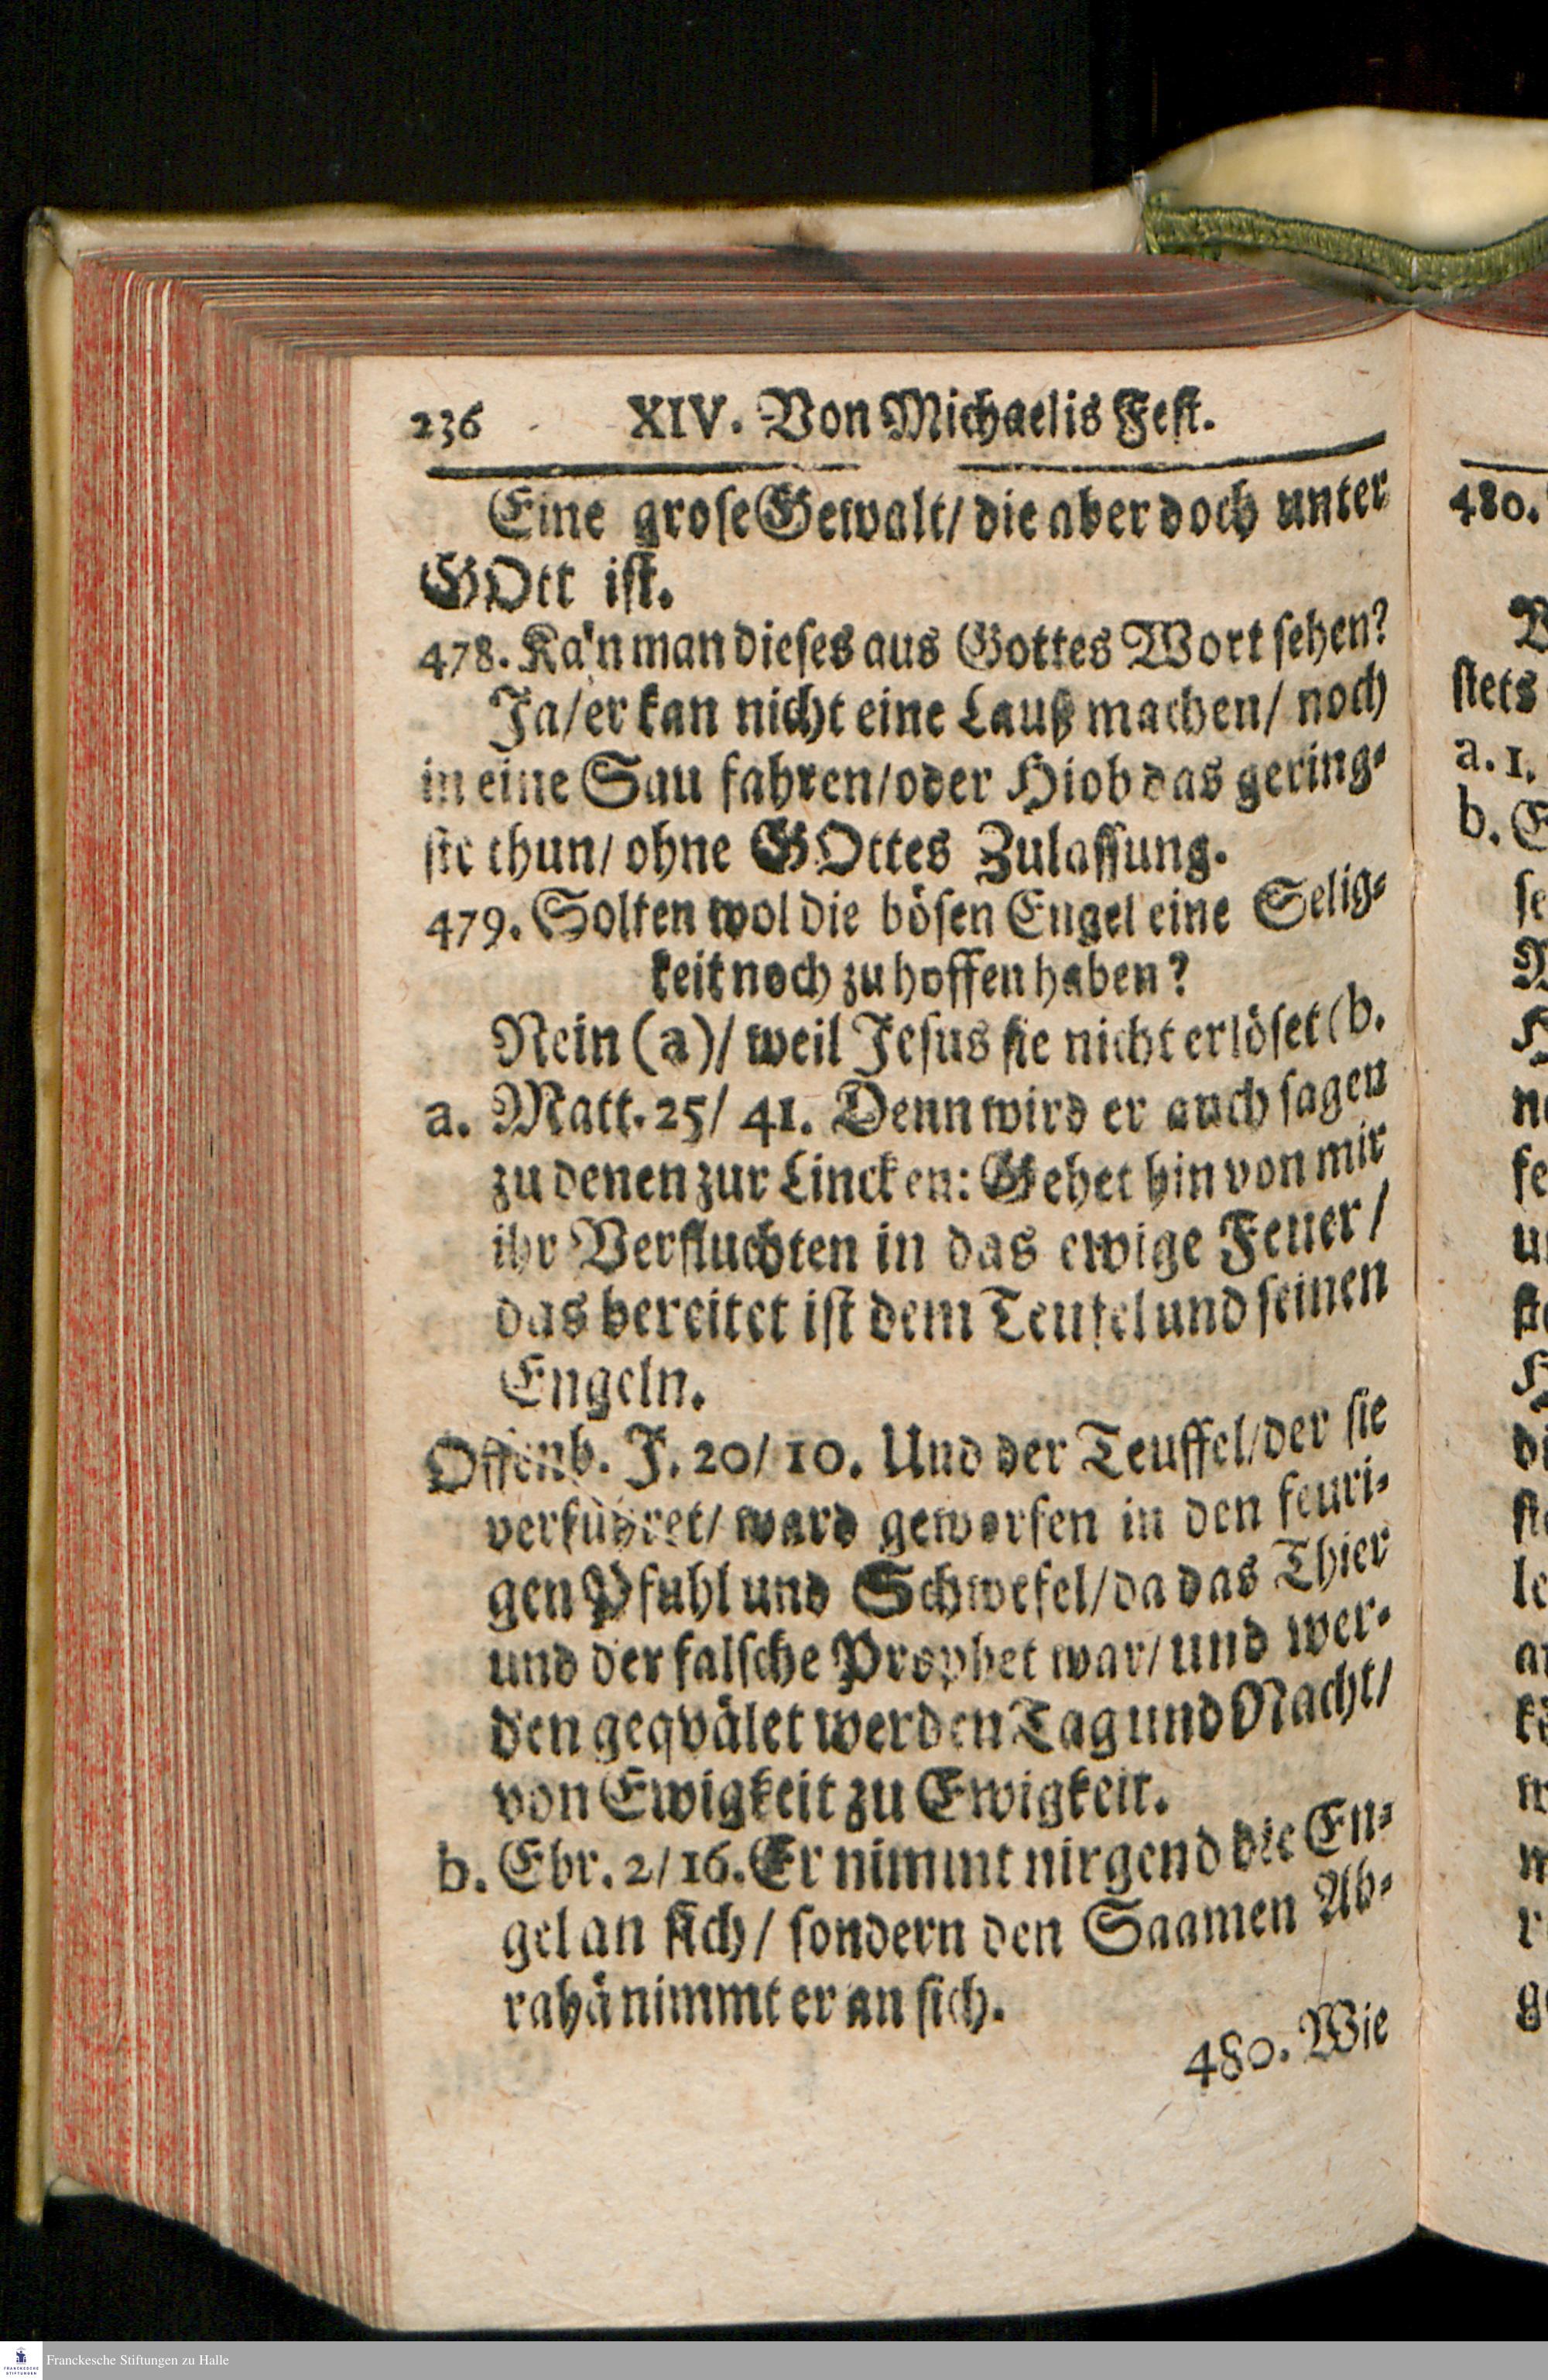 236 XIV. Von Michaelis Fest.
Eine grose Gewalt/ die aber doch unter
GOtt ist.
478. Ka'n man dieses aus Gottes Wort sehen?
Ja/ er kan nicht eine Lauß machen/ noch
in eine Sau fahren/ oder Hiob das gering⸗
ste thun/ ohne GOttes Zulassung.
479. Solten wol die bösen Engel eine Selig⸗
keit noch zu hoffen haben?
Nein (a)/ weil Jesus sie nicht erlöset (b.
a. Matt. 25/ 41. Denn wird er auch sagen
zu denen zur Lincken: Gehet hin von mir
ihr Verfluchten in das ewige Feuer/
das bereitet ist dem Teufel und seinen
Engeln.
Offenb. J. 20/ 10. Und der Teuffel/ der sie
verführet/ ward geworfen in den feuri⸗
gen Pfuhl und Schwefel/ da das Thier
und der falsche Prophet war/ und wer⸗
den geqvälet werden Tag und Nacht/
von Ewigkeit zu Ewigkeit.
b. Ebr. 2/ 16. Er nimmt nirgend die En⸗
gel an sich/ sondern den Saamen Ab⸗
rahā nimmt er an sich.
480. Wie
480.
stets
a. 1.
b.
Franckesche Stiftungen zu Halle